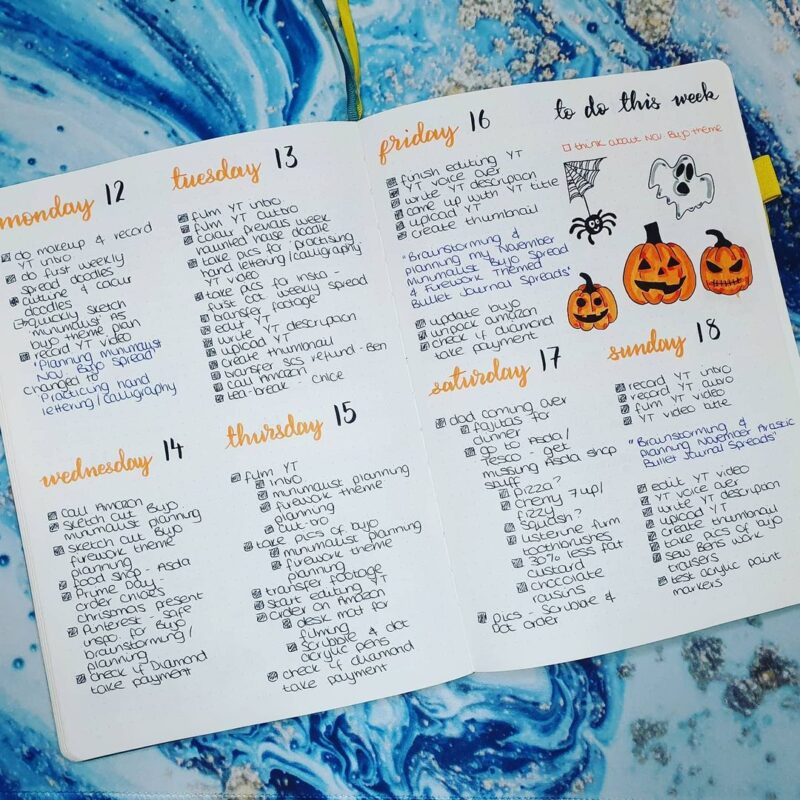 monday 12
do makeup & record
YT intro
do first weekly
spread doodles
outline & colour
doodles
quickly sketch
minimalist A5
bujo theme plan
record YT video
"Planning minimalist
Nov. Bujo Spread"
changed to
Practicing hand
lettering/calligraphy
tuesday 13
film YT intro
film YT outro
colour previous week
haunted house doodle
take pics for practising
hand lettering/calligraphy
YT video
take pics for insta -
first oct weekly spread
transfer footage
edit YT
write YT description
upload YT
create thumbnail
transfer SCS refund - Ben
call Amazon
tea-break - Chloe
wednesday 14
call Amazon
sketch out Bujo
minimalist planning
sketch out Bujo
firework theme
planning
food shop - Asda
Prime Day -
order Chloe's
christmas present
Pinterest - safe
inspo for Bujo
brainstorming/
planning
check if Diamond
take payment
thursday 15
film YT
intro
minimalist planning
firework theme
planning
out-tro
take pics of bujo
minimalist planning
firework theme
planning
transfer footage
start editing YT
order on Amazon
desk mat for
filming
scribble & dot
acrylic pens
check if diamond
take payment
friday 16
finish editing YT
YT voice over
write YT description
come up with YT title
upload YT
create thumbnail
"Brainstorming &
planning my November
Minimalist Bujo Spread
& Firework Themed
Bullet Journal Spreads"
update bujo
unpack amazon
check if diamond
take payment
saturday 17
dad coming over
fajitas for
dinner
go to Asda/
Tesco - get
missing Asda shop
stuff
pizza?
cherry 7up/
fizzy
squash?
listerine firm
toothbrushes
30% less fat
custard
chocolate
raisins
pics - Scribble &
Dot order
to do this week
think about Nov. Bujo theme
sunday 18
record YT intro
record YT outro
film YT video
YT video title
"Brainstorming &
planning November Arastic
Bullet Journal Spreads"
edit YT video
YT voice over
write YT description
upload YT
create thumbnail
take pics of bujo
sew Ben's work
trousers
test acrylic paint
markers